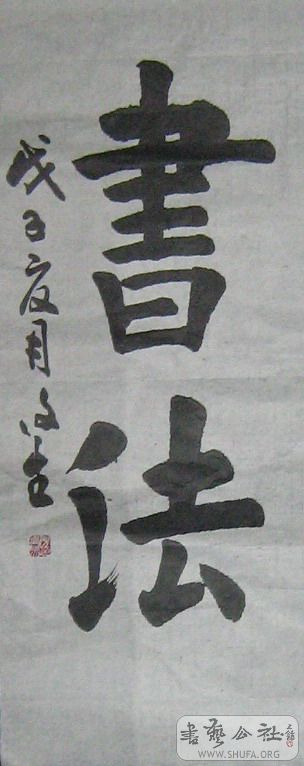 書法
戊子夏月
書藝公社
WWW.SHUFA.ORG